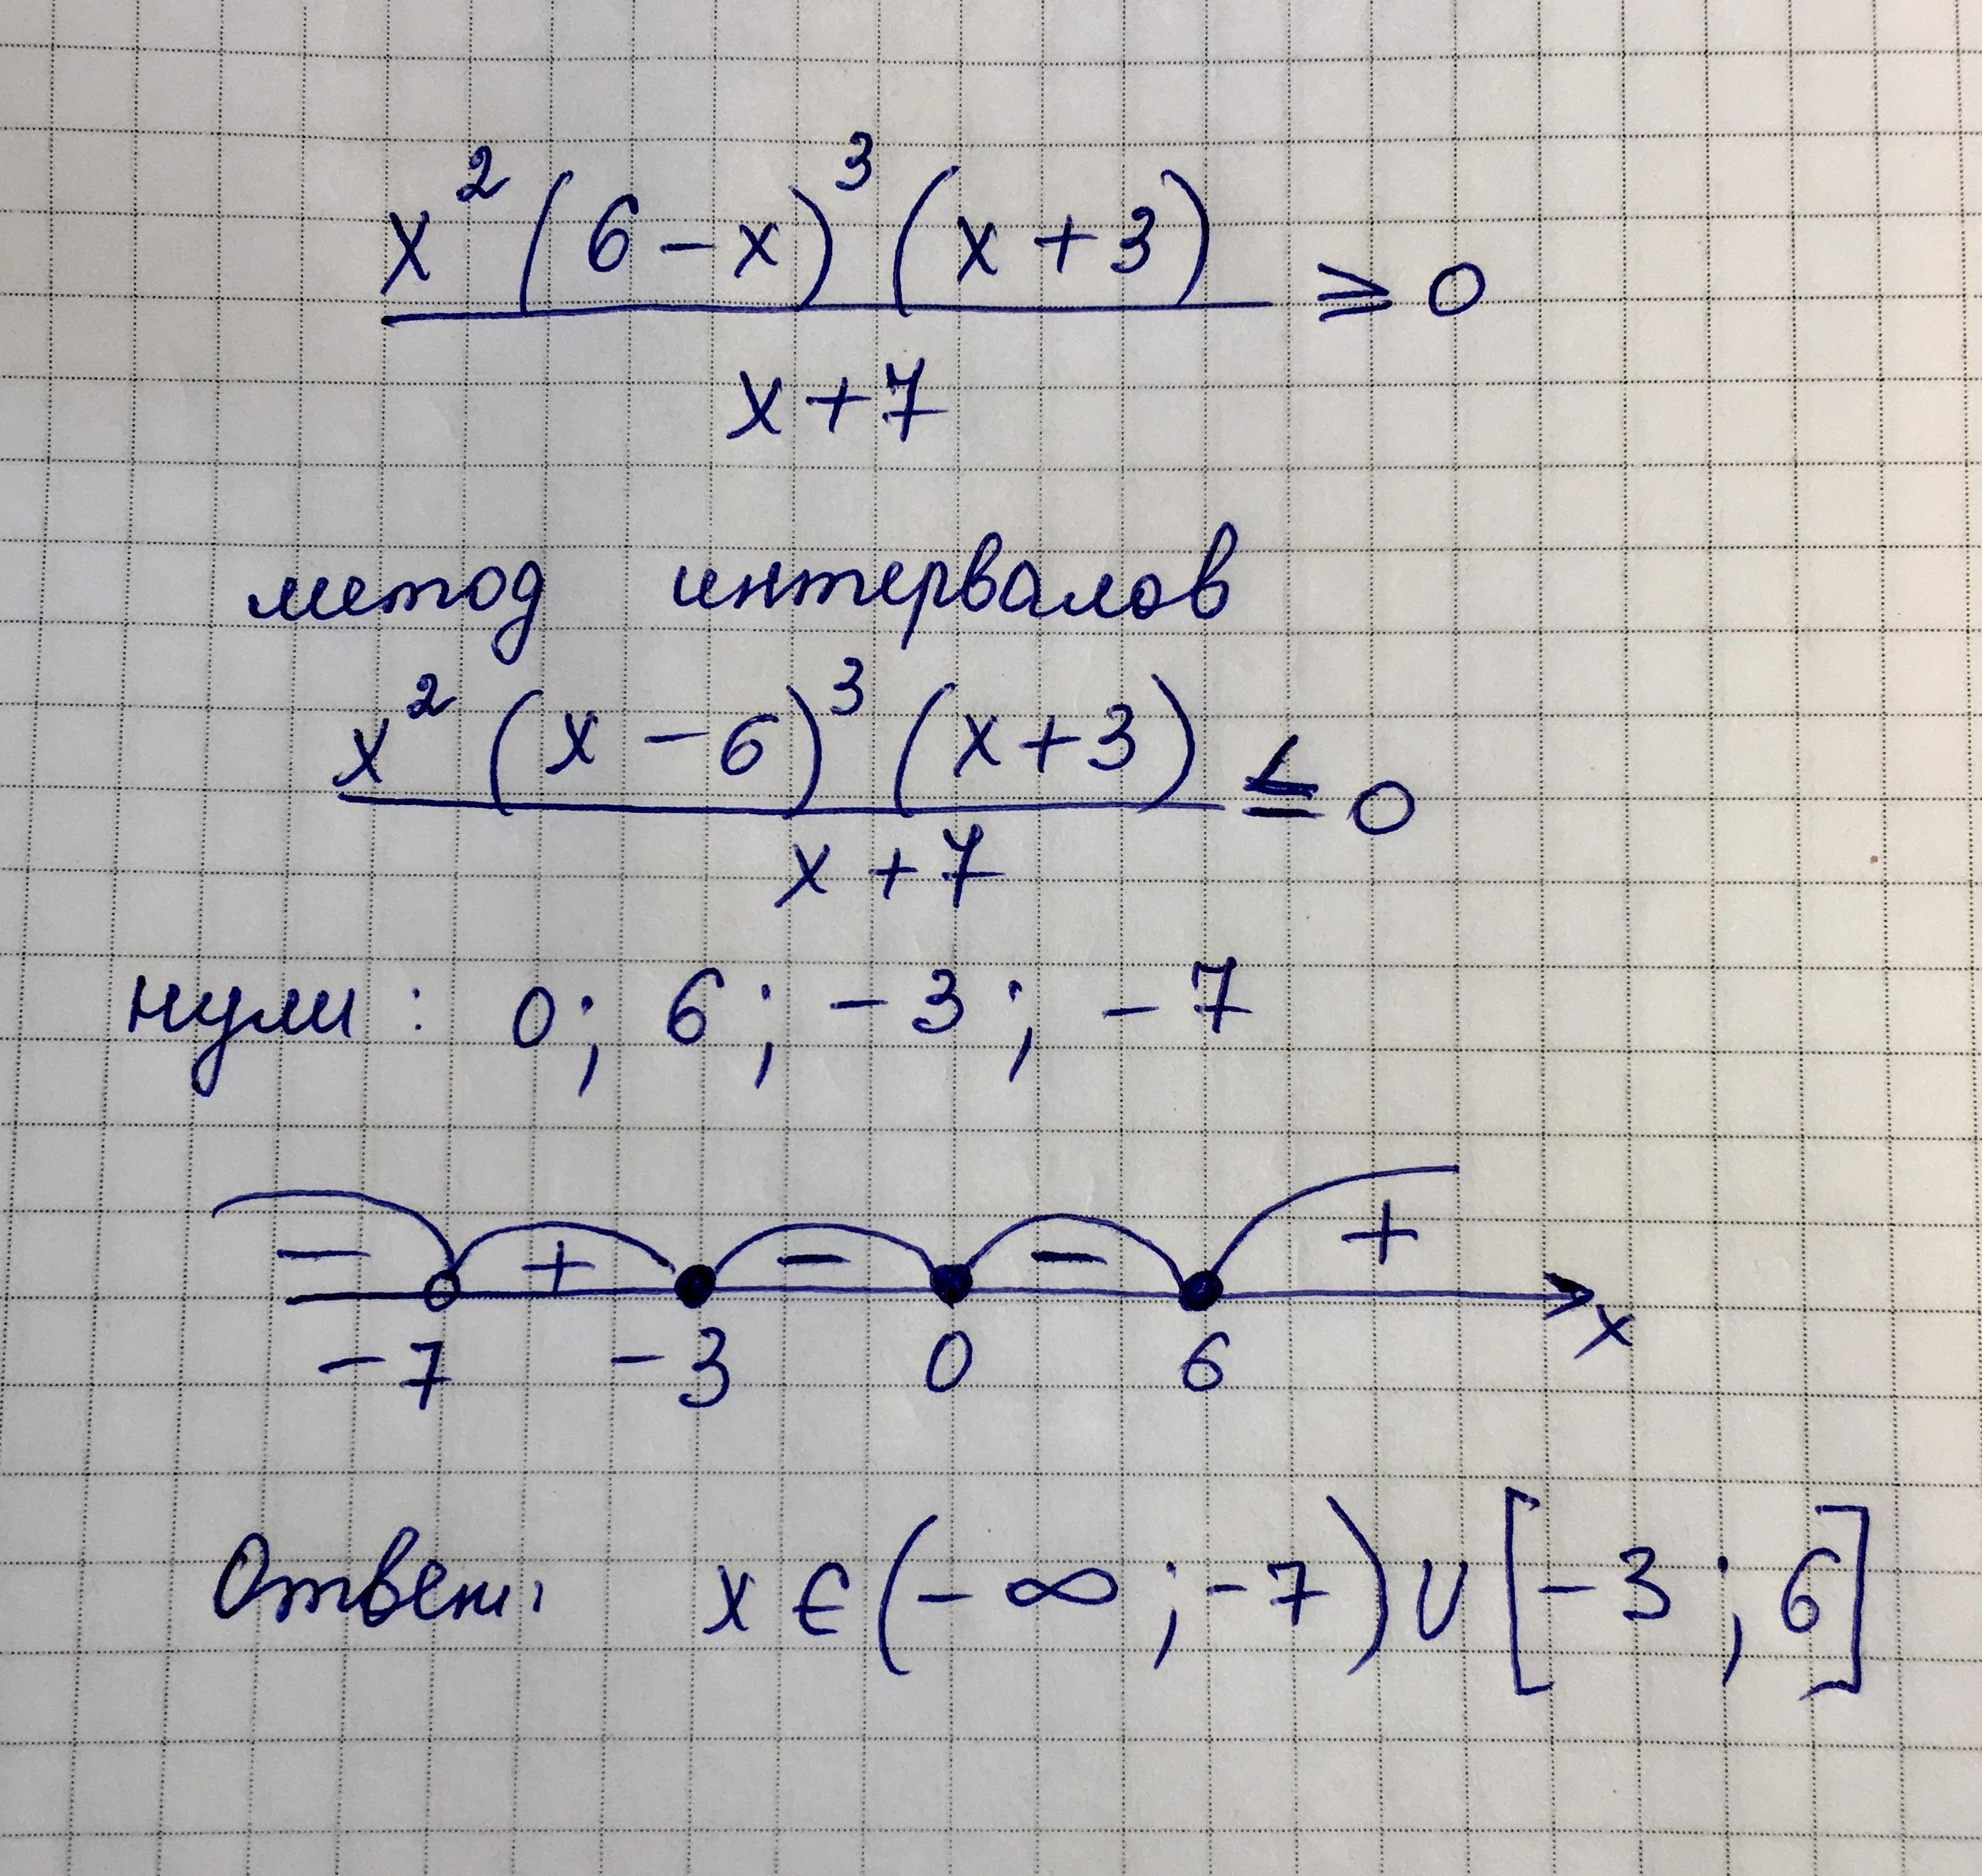 x²(6-x)³(x+3)
≥ 0
x+7
метод интервалов
x²(x-6)³(x+3)
≤ 0
x+7
нули: 0; 6; -3; -7
- + - - +
-7 -3 0 6 x
Ответ: x ∈ (-∞; -7) ∪ [-3; 6]